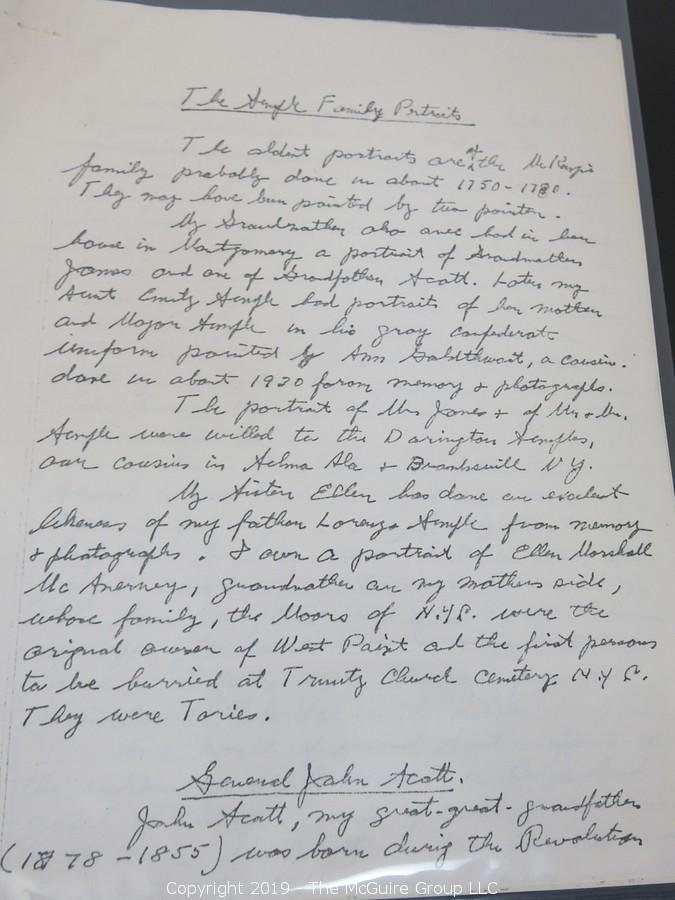 The Semple Family Portraits
The oldest portraits are of the Mc
family probably done in about 1750-1780.
They may have been painted by two painters.
My Grandmother also once had in her
house in Montgomery a portrait of Grandmother
James and one of Grandfather Scott. Later my
Aunt Emily Semple had portraits of her mother
and Major Semple in his gray confederate
uniform painted by Ann Goldthwait, a cousin.
done in about 1930 from memory & photographs.
The portrait of Mrs Jones & of Mr & Mrs.
Semple were willed to the Darington Semples,
our cousins in Selma Ala & N Y.
My Sister Ellen has done an exelent
likeness of my father Lorenzo Semple from memory
& photographs. I own a portrait of Ellen Marshall
Mc Anerney, grandmother on my mothers side,
whose family, the Moors of N.Y.C. were the
orignal owner of West Point and the first persons
to be burried at Trinity Church Cemetery N.Y C.
They were Tories.
General John Scott.
John Scott, my great-great-grandfather
(1878-1855) was born during the Revolution
Copyright 2019 - The McGuire Group LLC